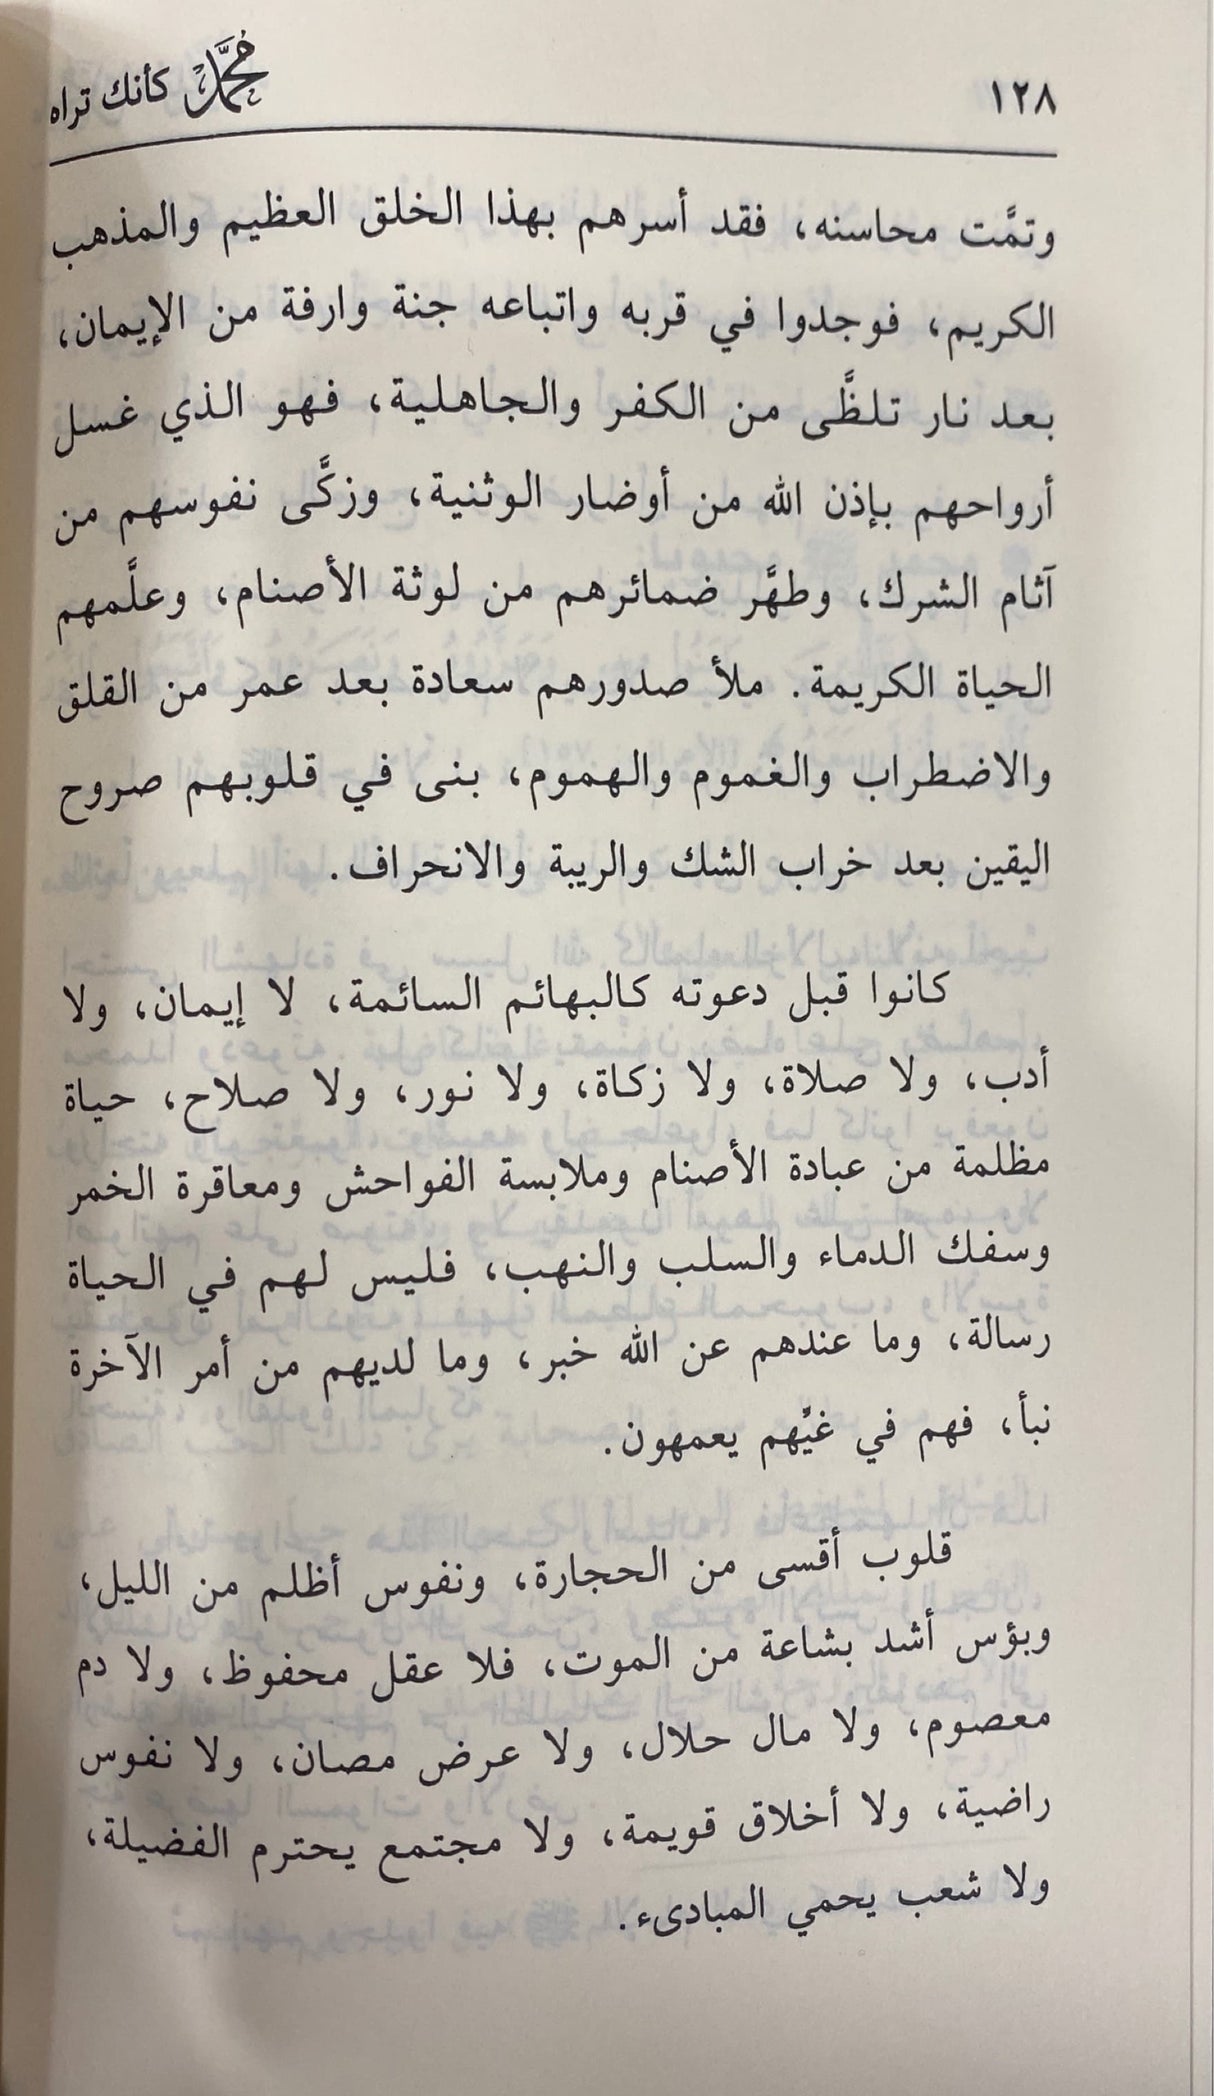 ١٢٨
محمد كأنك تراه
وتمَّت محاسنه، فقد أسرهم بهذا الخلق العظيم والمذهب
الكريم، فوجدوا في قربه واتباعه جنة وارفة من الإيمان،
بعد نار تلظَّى من الكفر والجاهلية، فهو الذي غسل
أرواحهم بإذن الله من أوضار الوثنية، وزكَّى نفوسهم من
آثام الشرك، وطهَّر ضمائرهم من لوثة الأصنام، وعلَّمهم
الحياة الكريمة. ملأ صدورهم سعادة بعد عمر من القلق
والاضطراب والغموم والهموم، بنى في قلوبهم صروح
اليقين بعد خراب الشك والريبة والانحراف.
كانوا قبل دعوته كالبهائم السائمة، لا إيمان، ولا
أدب، ولا صلاة، ولا زكاة، ولا نور، ولا صلاح، حياة
مظلمة من عبادة الأصنام وملابسة الفواحش ومعاقرة الخمر
وسفك الدماء والسلب والنهب، فليس لهم في الحياة
رسالة، وما عندهم عن الله خبر، وما لديهم من أمر الآخرة
نبأ، فهم في غيِّهم يعمهون.
قلوب أقسى من الحجارة، ونفوس أظلم من الليل،
وبؤس أشد بشاعة من الموت، فلا عقل محفوظ، ولا دم
معصوم، ولا مال حلال، ولا عرض مصان، ولا نفوس
راضية، ولا أخلاق قويمة، ولا مجتمع يحترم الفضيلة،
ولا شعب يحمي المبادىء.